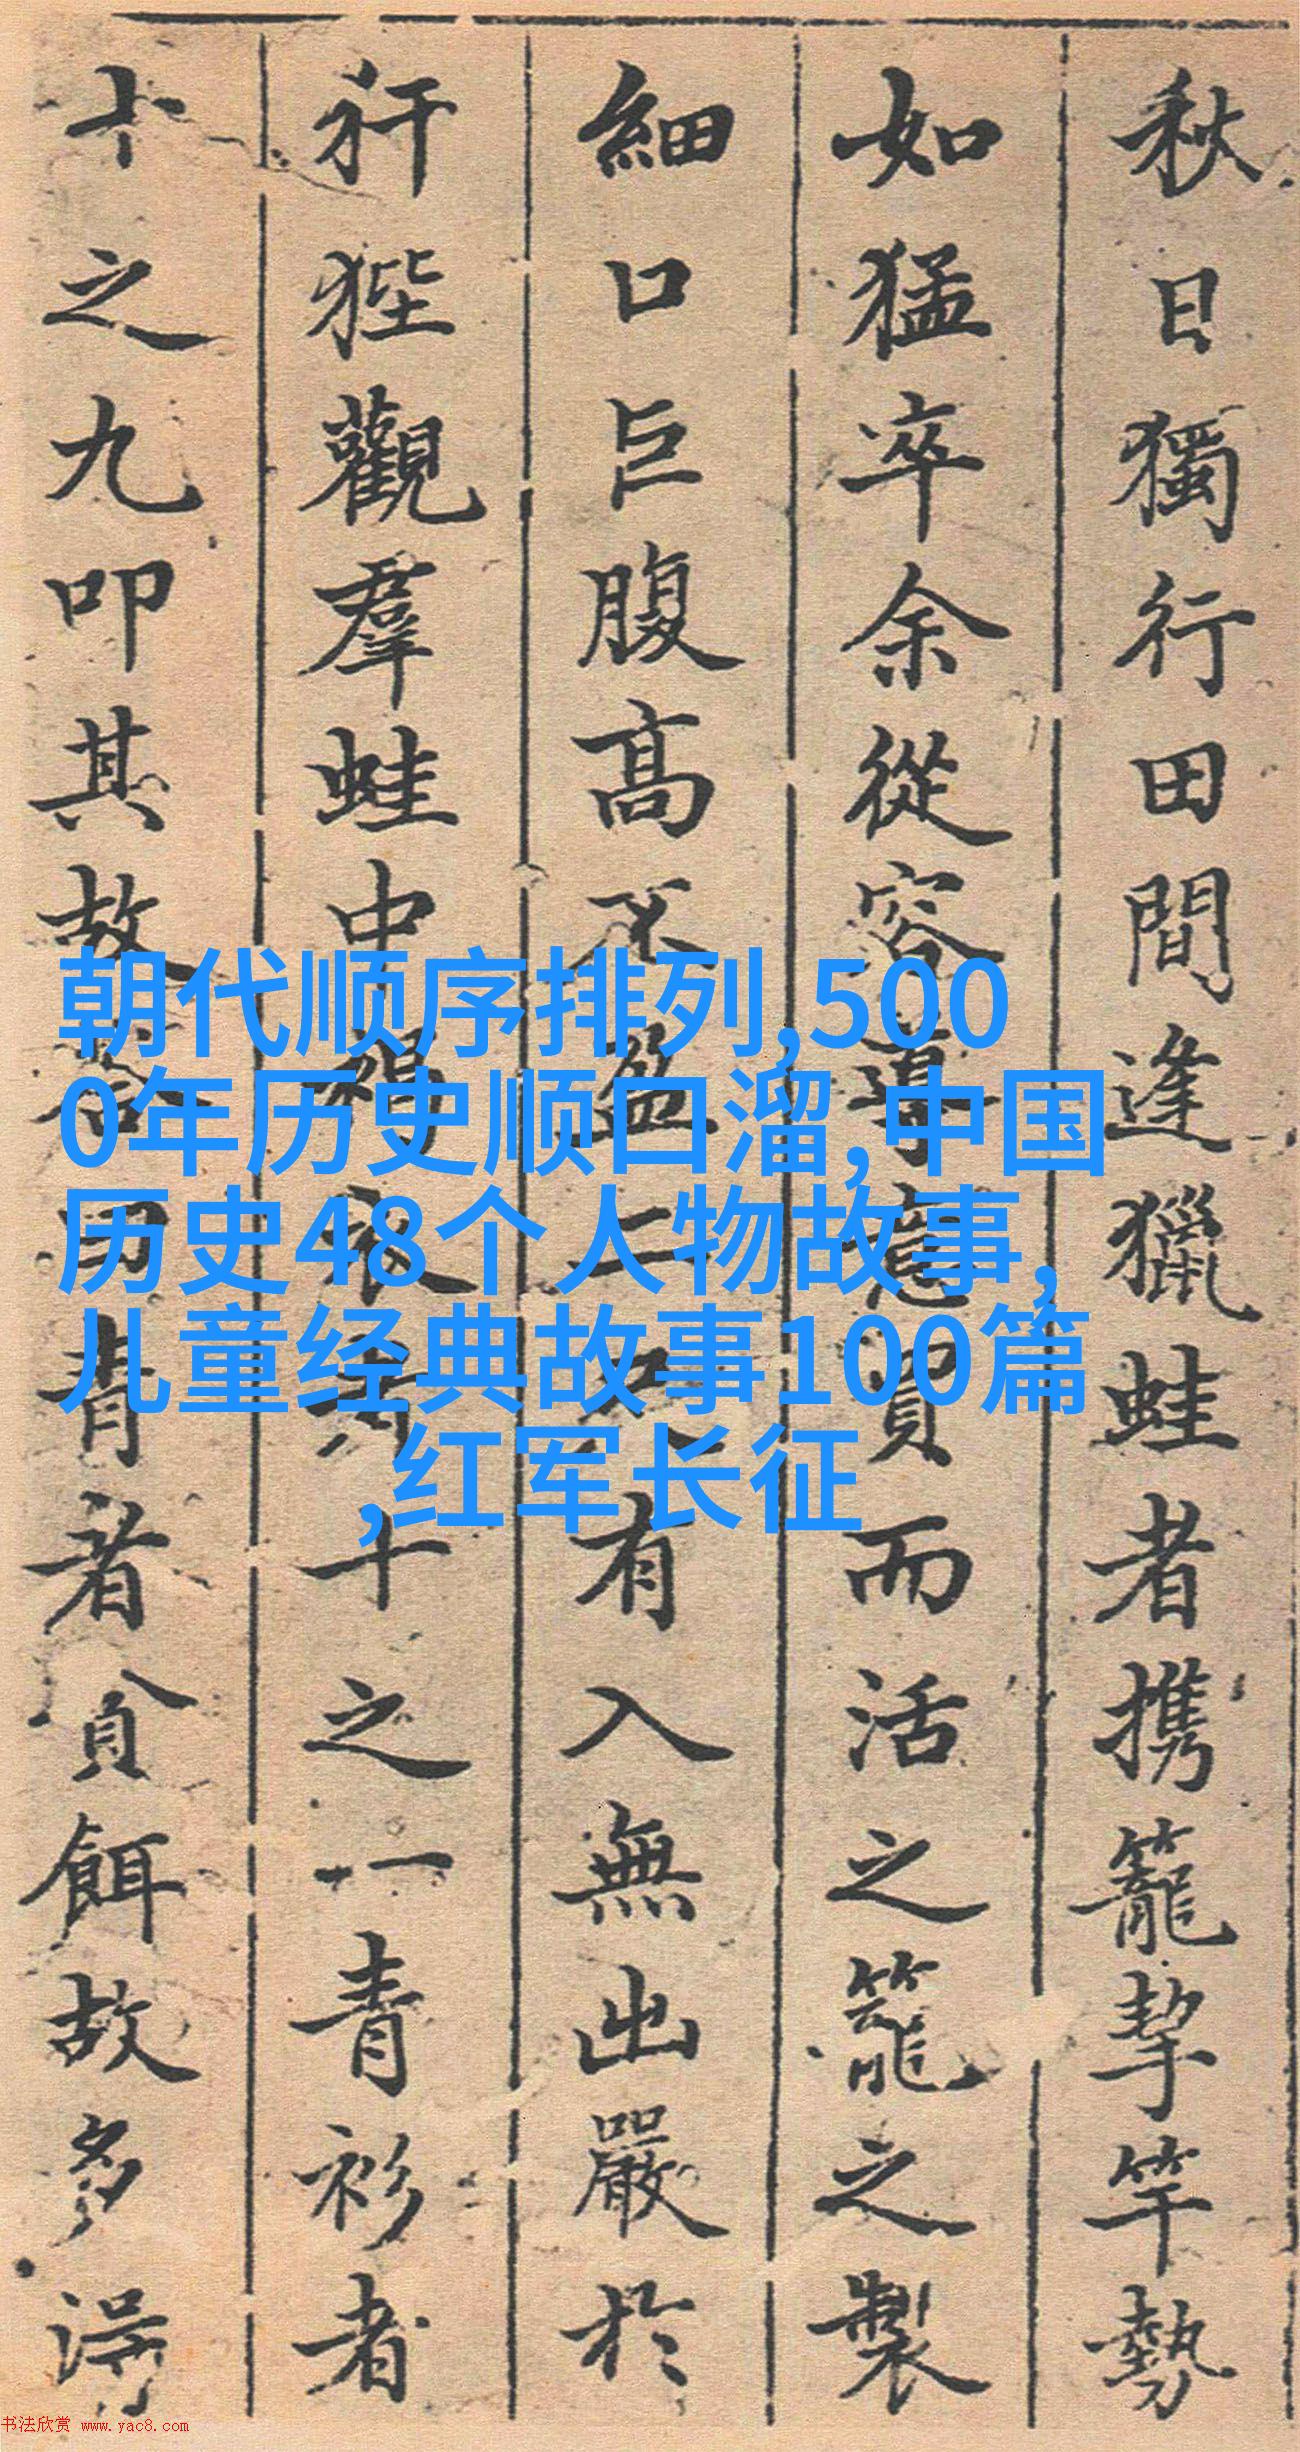 秋日獨行田間逢獵蛙者携籠挈竿勢
如猛卒余從容導意買而活之籠之製
細口巨腹高不盈二尺有入無出嚴於
犴狴觀羣蛙中褐衣者十之一青衫者
十之九叩其故答曰青者貪餌故多得
朝代顺序排列,500
0年历史顺口溜,中国
历史48个人物故事,
儿童经典故事100篇
,红军长征
书法欣赏 www.yac8.com